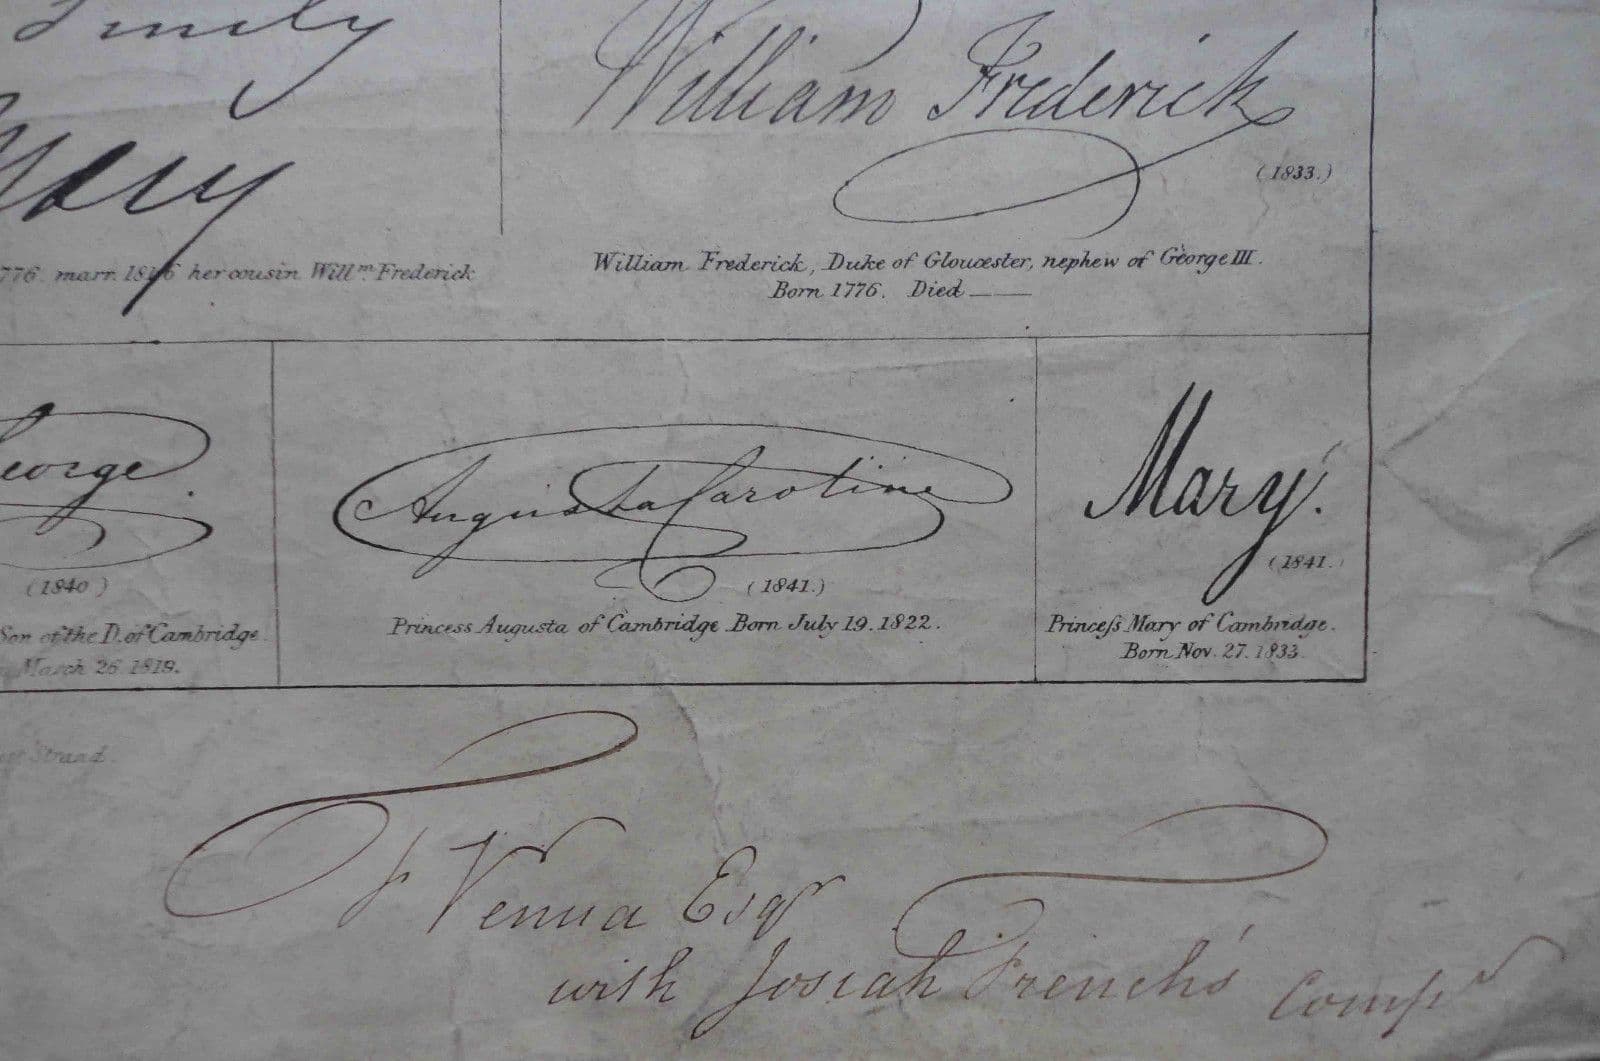 William Frederick
(1833.)
Mary
776. marr. 1816 her cousin Willm. Frederick
William Frederick, Duke of Gloucester, nephew of George III.
Born 1776. Died ——
eorge.
(1840)
Son of the D. of Cambridge
March 26 1819.
Augusta Caroline
(1841.)
Princess Augusta of Cambridge Born July 19. 1822.
Mary.
(1841.
Princeſs Mary of Cambridge.
Born Nov. 27. 1833
Strand.
F Venua Esqr
with Josiah French's Compts